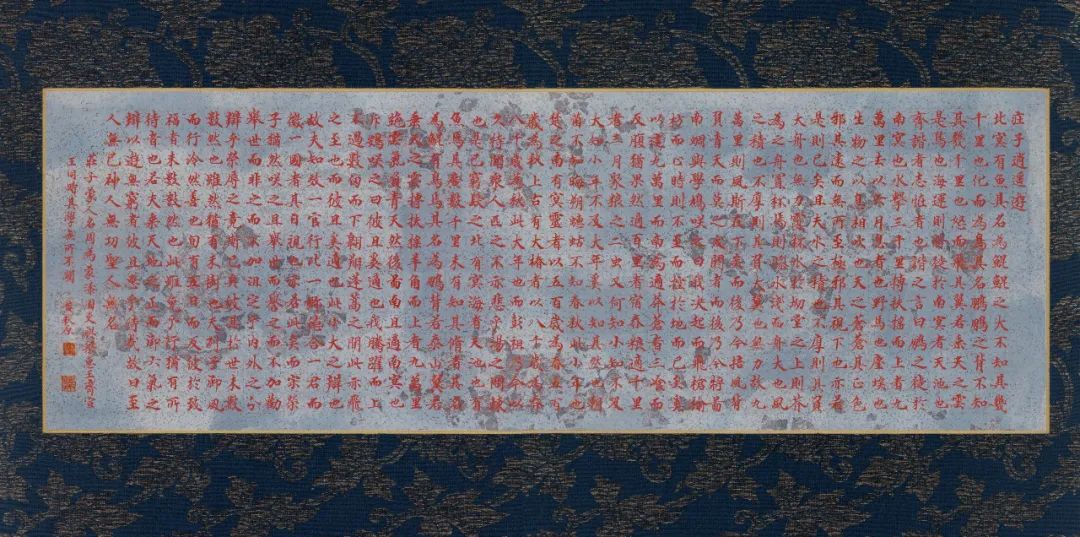 莊子逍遙遊
北冥有魚其名為鯤鯤之大不知其幾
千里也化而為鳥其名鵬鵬之背不知
其幾千里也怒而飛其翼若垂天之雲
是鳥也海運則將徙於南冥者天池也
齊諧者志怪者也諧之言曰鵬之徙於
南冥也水擊三千里摶扶搖而上者九
萬里去以六月息者也野馬也塵埃也
生物之以息相吹也天之蒼蒼其正色
邪其遠而無所至極邪其視下也亦若
是則已矣且夫水之積也不厚則其負
大舟也無力覆杯水於坳堂之上則芥
為之舟置杯焉則膠水淺而舟大也風
之積也不厚則其負大翼也無力故九
萬里則風斯在下矣而後乃今培風背
負青天而莫之夭閼者而後乃今將圖
南蜩與學鳩笑之曰我決起而飛槍榆
枋而止時則不至而控於地而已矣奚
以之九萬里而南為適莽蒼者三飡而
反腹猶果然適百里者宿舂糧適千里
者三月聚糧之二蟲又何知小知不及
大知小年不及大年奚以知其然也朝
菌不知晦朔蟪蛄不知春秋此小年也
楚之南有冥靈者以五百歲為春五百
歲為秋上古有大椿者以八千歲為春
八千歲為秋此大年也而彭祖乃今以
久特聞眾人匹之不亦悲乎湯之問棘
也是已窮髮之北有冥海者天池也有
魚焉其廣數千里未有知其脩者其名
為鯤有鳥焉其名為鵬背若泰山翼若
垂天之雲摶扶搖羊角而上者九萬里
絕雲氣負青天然後圖南且適南冥也
斥鴳笑之曰彼且奚適也我騰躍而上
不過數仞而下翱翔蓬蒿之間此亦飛
之至也而彼且奚適也此小大之辯也
故夫知效一官行比一鄉德合一君而
徵一國者其自視也亦若此矣而宋榮
子猶然笑之且舉世而譽之而不加勸
舉世而非之而不加沮定乎內外之分
辯乎榮辱之竟斯已矣彼其於世未數
數然也雖然猶有未樹也夫列子御風
而行泠然善也旬有五日而反彼於致
福者未數數然也此雖免乎行猶有所
待者也若夫乘天地之正而御六氣之
辯以遊無窮者彼且惡乎待哉故曰至
人無己神人無功聖人無名
莊子蒙人名周為蒙漆園吏與梁惠王齊宣
王同時其學無所不闚